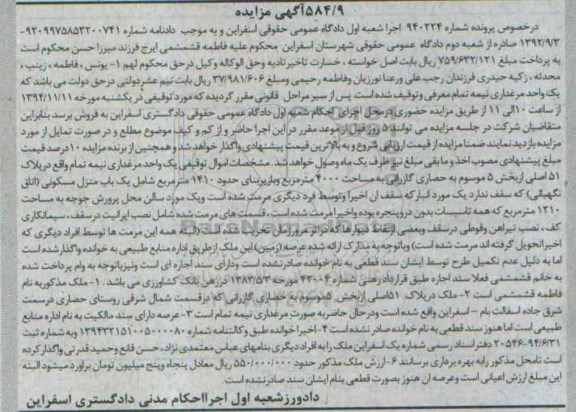 ۵۸۴/۹آگهی مزایده
درخصوص پرونده شماره ۹۴۰۲۲۴ اجرا شعبه اول دادگاه عمومی حقوقی اسفراین و به موجب دادنامه شماره ۹۲۰۹۹۷۵۸۵۳۲۰۰۷۴۱-
۱۳۹۲/۹/۳ صادره از شعبه دوم دادگاه عمومی حقوقی شهرستان اسفراین محکوم علیه فاطمه قشمشمی ایرج فرزند میرزا حسن محکوم است
به پرداخت مبلغ ۷۵۹/۶۳۲/۱۲۱ ریال بابت اصل خواسته ، خسارت تاخیر تادیه وحق الوکاله وکیل درحق محکوم لهم ۱- یونس ، فاطمه ، زینب ،
محدثه ، زکیه حیدری فرزندان رجب علی ورعنا نورزیان وفاطمه رحیمی ومبلغ ۳۷/۹۸۱/۶۰۶ ریال بابت نیم عشر دولتی درحق دولت می باشد که
یک واحد مرغداری نیمه تمام معرفی وتوقیف شده است. پس از سیر مراحل قانونی مقرر گردیده که مورد توقیفی در یکشنبه مورخه ۱۳۹۴/۱۱/۱۱
از ساعت ۱۰ الی ۱۱ از طریق مزایده حضوری در محل اجرای احکام شعبه اول دادگاه عمومی حقوقی دادگستری اسفراین به فروش برسد بنابراین
متقاضیان شرکت در جلسه مزایده می توانند ۵ روز قبل از موعد مقرر در این اجرا حاضر و از کم و کیف موضوع مطلع و در صورت تمایل از مورد
مزایده بازدید نمایند ضمنا مزایده از قیمت ارزیابی شروع و به بالاترین قیمت پیشنهادی واگذار خواهد شد و همچنین از برنده مزایده ۱۰ درصد قیمت
مبلغ پیشنهادی مصوب اخذ و ما بقی مبلغ نیز ظرف یک ماه وصول خواهد شد. مشخصات اموال توقیفی یک واحد مرغداری نیمه تمام واقع در پلاک
۵۱ اصلی از بخش ۵ موسوم به حصاری گازرانی به مساحت ۴۰۰۰ مترمربع وبازیربنای حدود ۱۴۱۰ مترمربع شامل یک باب منزل مسکونی (اتاق
نگهبانی) که سقف ندارد یک مورد انبار که سقف ان اخیرا وتوسط فرد دیگری مرمت شده است ویک مورد سالن محل پرورش جوجه به مساحت
۱۳۱۰ مترمربع که همه تاسیسات بدون درو پنجره بوده واخیرا مرمت شده است ، قسمت های مرمت شده شامل نصب ایرانیت در سقف ، سیمانکاری
کف ، نصب نیراهن وقوطی درسقف وبعضی ارتفاع دیوارها که دراثر مرورزمان تخریب شده اند می باشد (البته همه این مرمت ها توسط افراد دیگری که
اخیرا تحویل گرفته اند مرمت شده است) وباتوجه به مدارک ارائه شده عرصه (زمین) این ملک از طریق اداره منابع طبیعی به خوانده واگذار شده است
اما به دلیل عدم تکمیل طرح توسط ایشان سند قطعی به نام خوانده صادر نشده است ودارای سند اجاره ای است ونیز باتوجه به وام پرداخت شده
به خانم قشمشمی فعلا سند اجاره طبق قرارداد رهنی شماره ۴۳۰۰۴ مورخه ۱۳۸۳/۵/۳ در رهن بانک کشاورزی می باشد . ۱- ملک مذکور به نام
فاطمه قشمشمی است ۲- ملک در پلاک ۵۱ اصلی از بخش ۵ موسوم به حصاری گازرانی که در قسمت شمال شرقی روستای حصاری درسمت
شرق جاده اسفالت بام – اسفراین واقع شده است ودرحال حاضر به صورت مرغداری نیمه تمام است ۳- عرصه دارای سند مالکیت به نام اداره منابع
طبیعی است اما هنوز سند قطعی به نام خوانده صادر نشده است ۴- اخیرا خوانده طبق وکالتنامه شماره ۱۳۹۴۳۲۱۵۱۰۰۵۰۰۰۰۸۰ وبه شماره ثبت
۲۰۵۴۶-۹۴/۶/۳۱ دفتر اسناد رسمی شماره یک اسفراین ملک را به افراد دیگری بنامهای عباس معتمدی نژاد، حسن قانع وحمید قدرتی واگذار کرده
است تا محل مذکور را به بهره برداری برسانند ۶- ارزش ملک مذکور حدود ۵۵۰/۰۰۰/۰۰۰ ریال معادل پنجاه وپنج میلیون تومان براورد میشود البته
این مبلغ ارزش اعیانی است وعرصه ان هنوز بصورت قطعی بنام ایشان سند صادر نشده است.
دادورز شعبه اول اجرااحکام مدنی دادگستری اسفراین